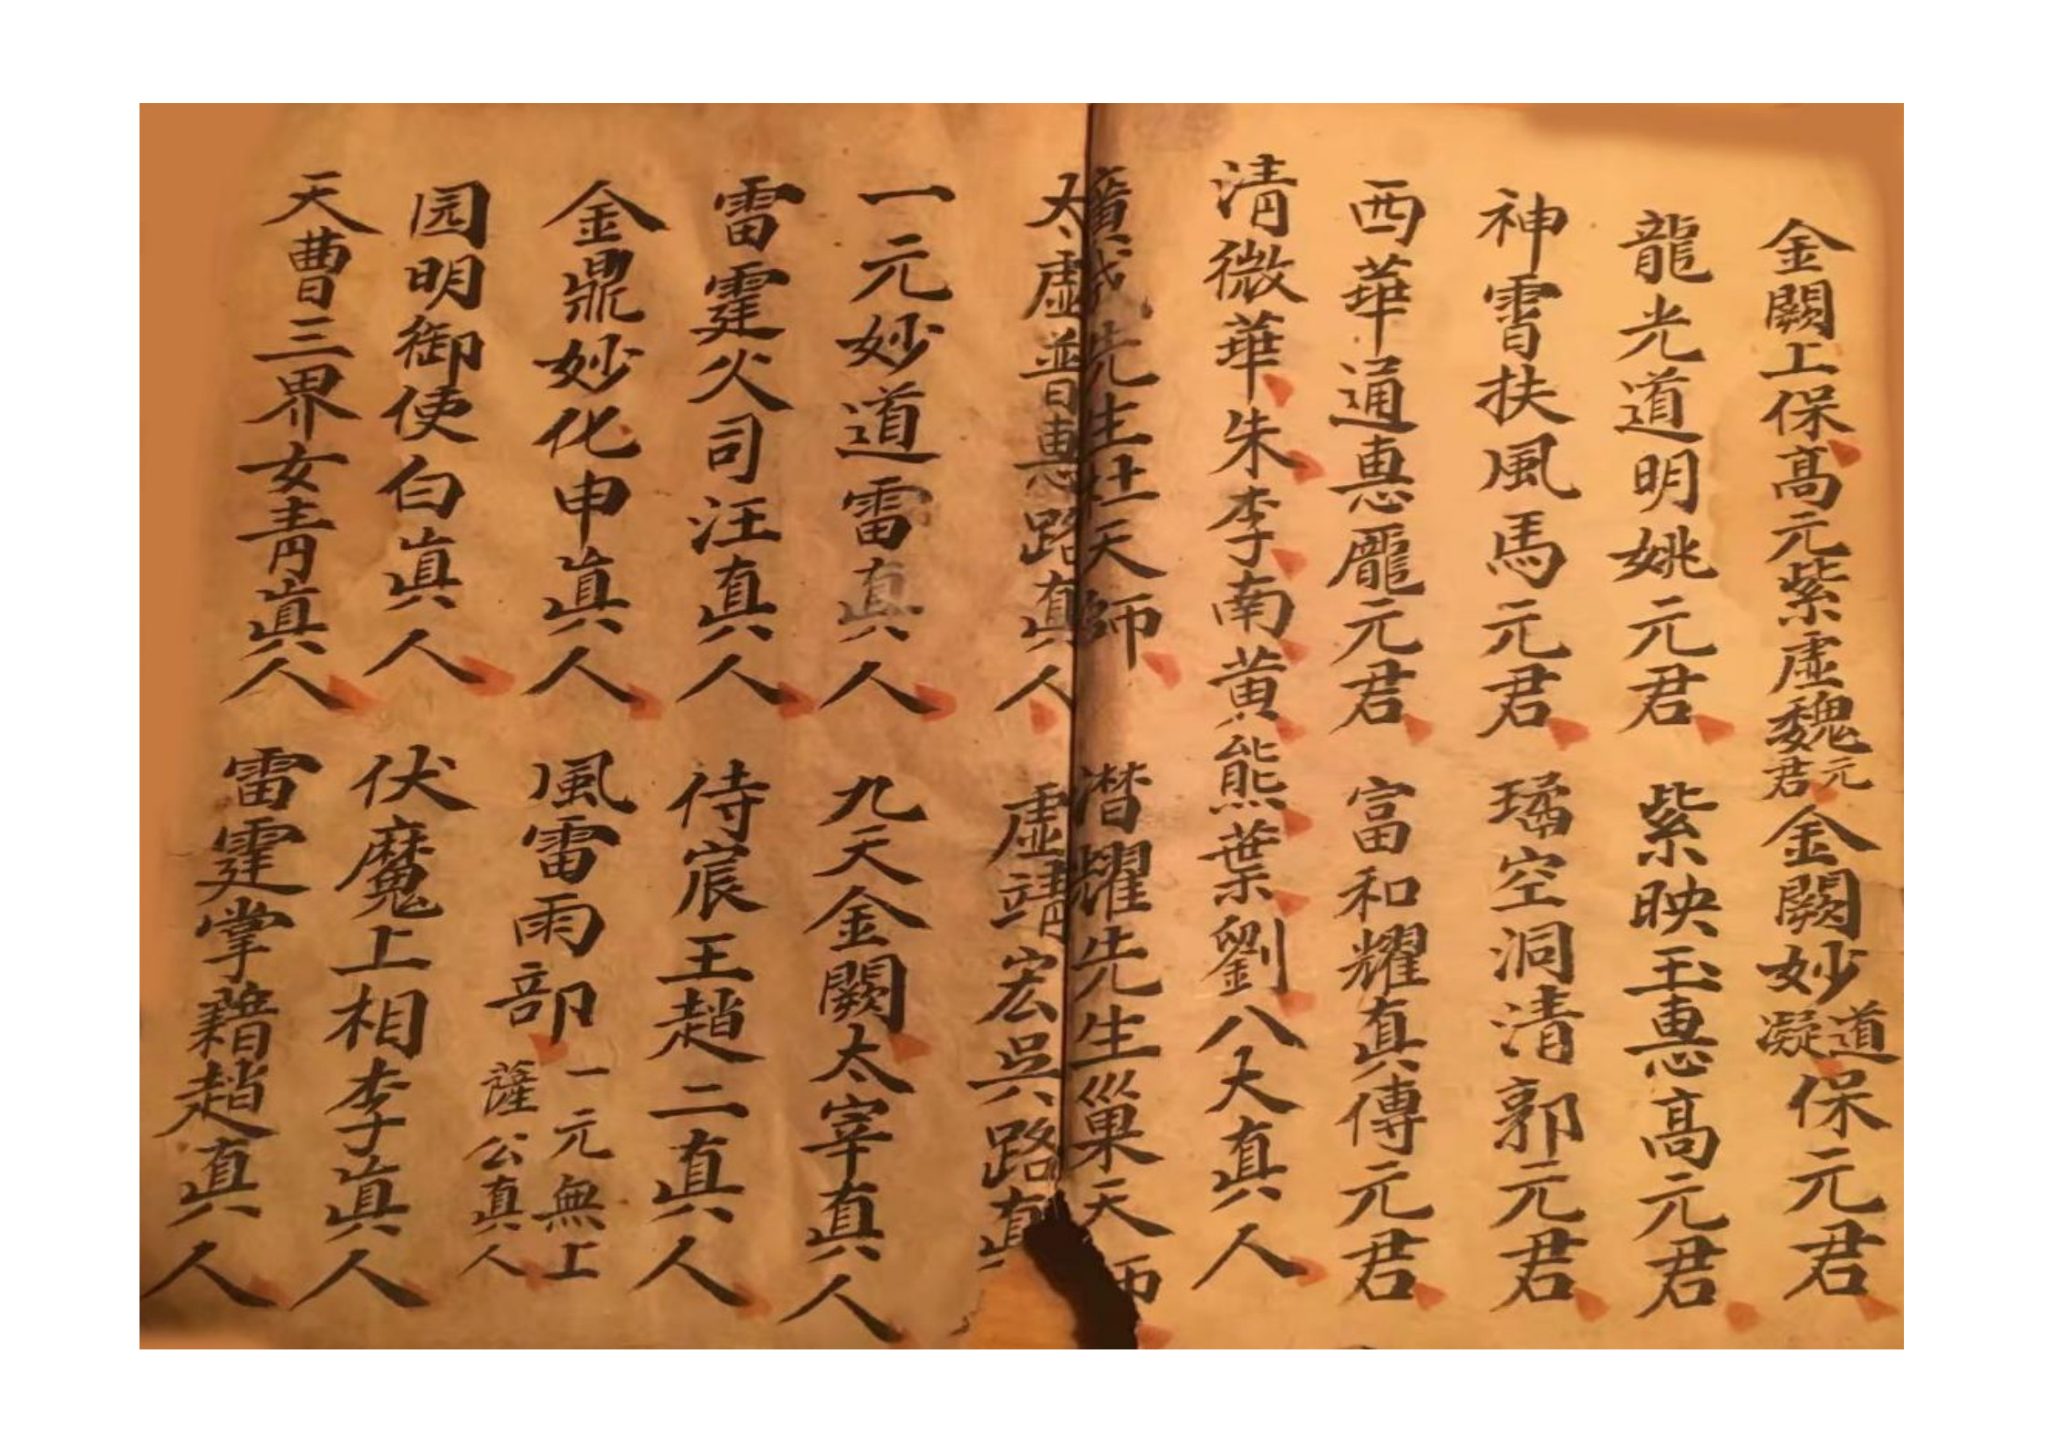 金闕上保髙元紫虛魏元君 金闕妙道凝保元君
龍光道明姚元君 紫映玉惠髙元君
神霄扶風馬元君 璚空洞清郭元君
西華通惠龎元君 富和耀真傅元君
清微華朱李南黄熊葉劉八大真人
先生杜天師 潜耀先生巢天師
太虛普惠路真人 虛靖宏吳路真
一元妙道雷真人 九天金闕太宰真人
雷霆火司汪真人 侍宸王趙二真人
金鼎妙化申真人 風雷雨部 一元無上薩公真人
园明御使白真人 伏魔上相李真人
天曹三界女青真人 雷霆掌籍趙真人